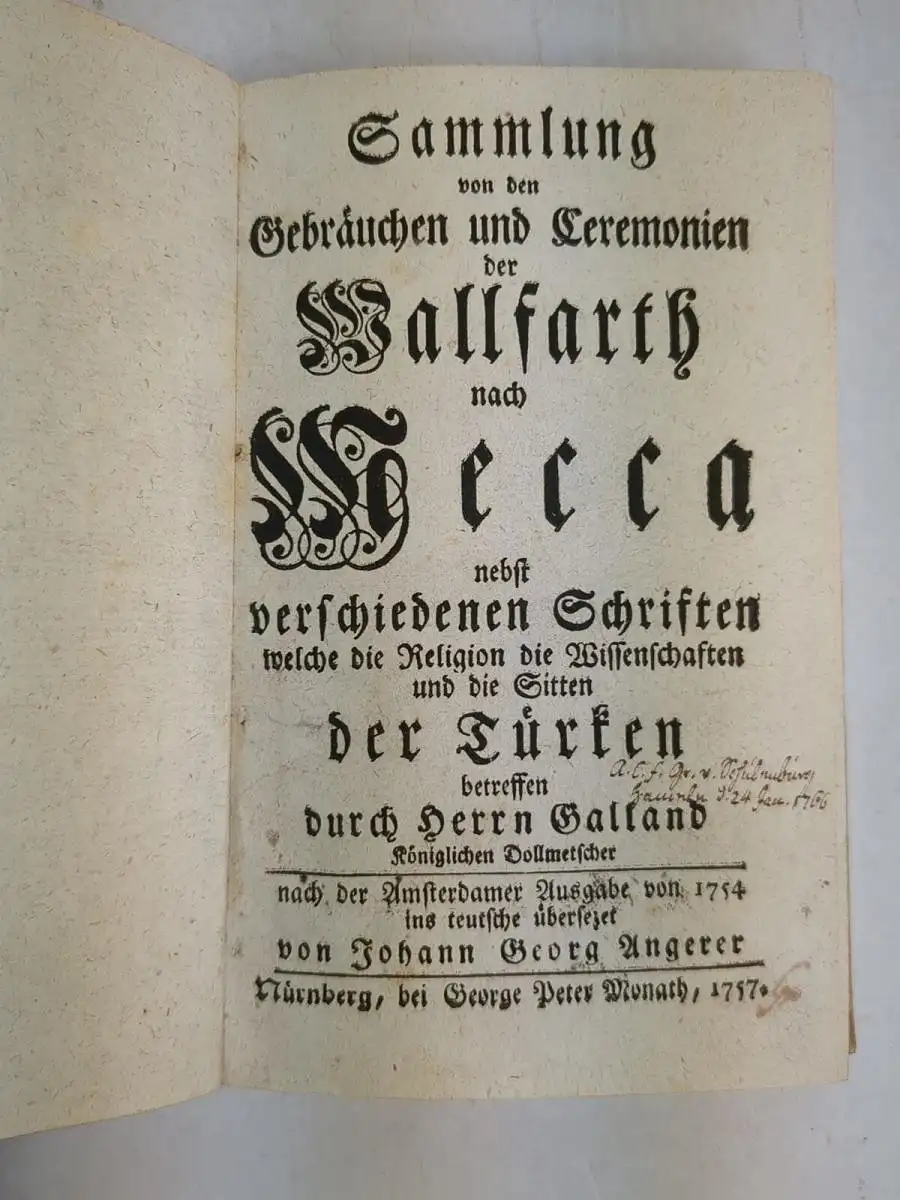 Sammlung
von den
Gebräuchen und Ceremonien
der
Wallfarth
nach
Mecca
nebſt
verſchiedenen Schriften
welche die Religion die Wiſſenſchaften
und die Sitten
der Tuͤrken
betreffen
A. C. f. Gr. v. Schulenburg
Hameln d. 24 Jan. 1766
durch Herrn Galland
Königlichen Dollmetſcher
nach der Amſterdamer Ausgabe von 1754
ins teutſche überſezet
von Johann Georg Angerer
Nürnberg, bei George Peter Monath, 1757.